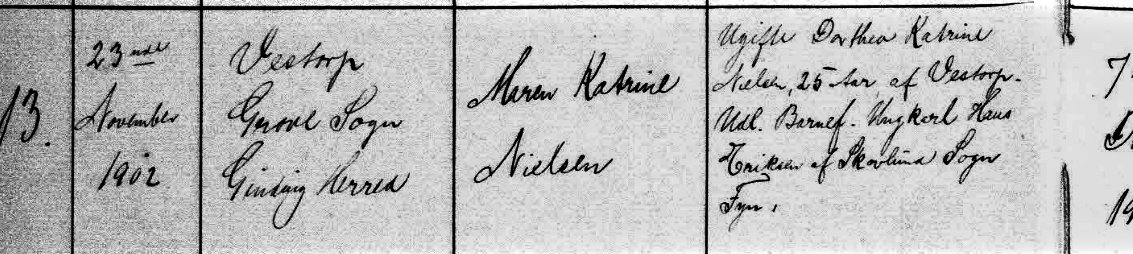 13.
23nde
November
1902
Vestorp
Grove Sogn
Ginding Herred
Maren Katrine
Nielsen
Ugifte Dorthea Katrine
Nielsen, 25 Aar af Vestorp.
Udl. Barnef. Ungkarl Hans
Eriksen af Skovlund Sogn
Fyn.
7
19